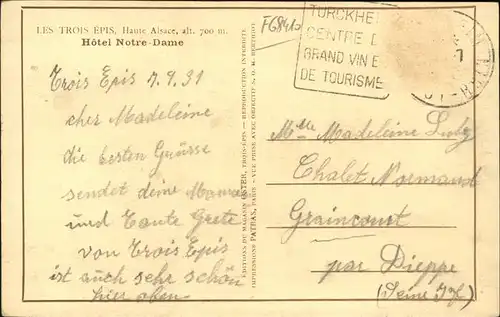 LES TROIS ÉPIS, Haute Alsace, alt. 700 m.
Hôtel Notre-Dame
Trois Epis 7.9.31
cher Madeleine
die besten Grüsse
sendet deine Mama
und Tante Grete
von Trois Epis
ist auch sehr schön
hier oben.
ÉDITIONS DU MAGASIN OSTER, TROIS-ÉPIS — REPRODUCTION INTERDITE
IMPRESSIONS PATRAS, PARIS — VUE PRISE AVEC OBJECTIF S.O.M. BERTHIOT
TURCKHEI
CENTRE D
GRAND VIN E
DE TOURISME
Mlle Madeleine Luby
Chalet Normand
Graincourt
par Dieppe
(Seine Inf)